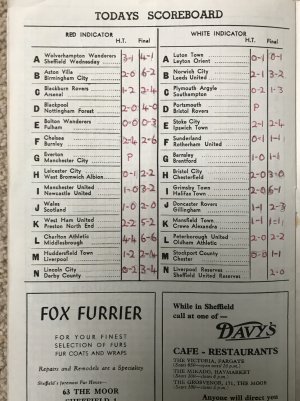 TODAYS SCOREBOARD
RED INDICATOR H.T. Final
A Wolverhampton Wanderers 3-1 4-1
Sheffield Wednesday
B Aston Villa 2-0 6-2
Birmingham City
C Blackburn Rovers 1-2 2-4
Arsenal
D Blackpool 2-0 4-0
Nottingham Forest
E Bolton Wanderers 0-0 0-3
Fulham
F Chelsea 2-4 2-6
Burnley
G Everton P
Manchester City
H Leicester City 0-1 2-2
West Bromwich Albion
I Manchester United 1-0 3-2
Newcastle United
J Wales 1-0 2-0
Scotland
K West Ham United 2-2 5-2
Preston North End
L Charlton Athletic 4-6 6-6
Middlesbrough
M Huddersfield Town 1-2 2-4
Liverpool
N Lincoln City 0-2 3-4
Derby County
WHITE INDICATOR H.T. Final
A Luton Town 0-1 0-1
Leyton Orient
B Norwich City 2-1 3-2
Leeds United
C Plymouth Argyle 0-2 1-3
Southampton
D Portsmouth P
Bristol Rovers
E Stoke City 2-1 2-4
Ipswich Town
F Sunderland 0-1 1-1
Rotherham United
G Barnsley 1-0 1-1
Brentford
H Bristol City 2-0 3-0
Chesterfield
I Grimsby Town 1-0
Halifax Town
J Doncaster Rovers 1-1 2-3
Gillingham
K Mansfield Town 1-1
Crewe Alexandra
L Peterborough United 2-0 2-2
Oldham Athletic
M Stockport County 0-0 1-1
Chester
N Liverpool Reserves 2-0
Sheffield United Reserves
FOX FURRIER
FOR YOUR FINEST
SELECTION OF FURS
FUR COATS AND WRAPS
Repairs and Remodels are a Speciality
Sheffield's foremost Fur House—
63 THE MOOR
While in Sheffield
call at one of —
DAVYS
CAFE - RESTAURANTS
THE VICTORIA, FARGATE
THE MIKADO, HAYMARKET
THE GROSVENOR, 171, THE MOOR
Anyone will direct you